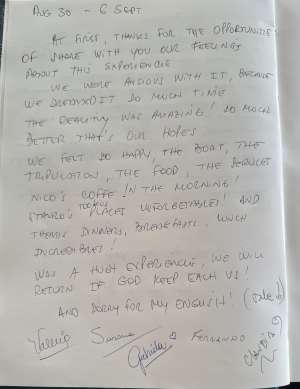 AUG 30 - 6 SEPT
AT FIRST, THANKS FOR THE OPPORTUNITIE
OF SHARE WITH YOU OUR FEELINGS
ABOUT THIS EXPERIENCIE
WE WERE ANXIOUS WITH IT, BECAUSE
WE DESERVED IT SO MUCH TIME
THE REALITY WAS AMAZING! SO MUCH
BETTER THAT'S OUR HOPES
WE FELT SO HAPPY, THE BOAT, THE
TRIPULATION, THE FOOD, THE SERVICES
NICO'S COFFE IN THE MORNING!
STAVRO'S PLACES UNFORGETABLES! AND
THANOS DINNERS, BREAKFASTS, LUNCH
INCREDIBLES!
WAS A HUGE EXPERIENCIE, WE WILL
RETURN IF GOD KEEP EACH US!
AND SORRY FOR MY ENGLISH!
Susana Gabriela FERNANDO